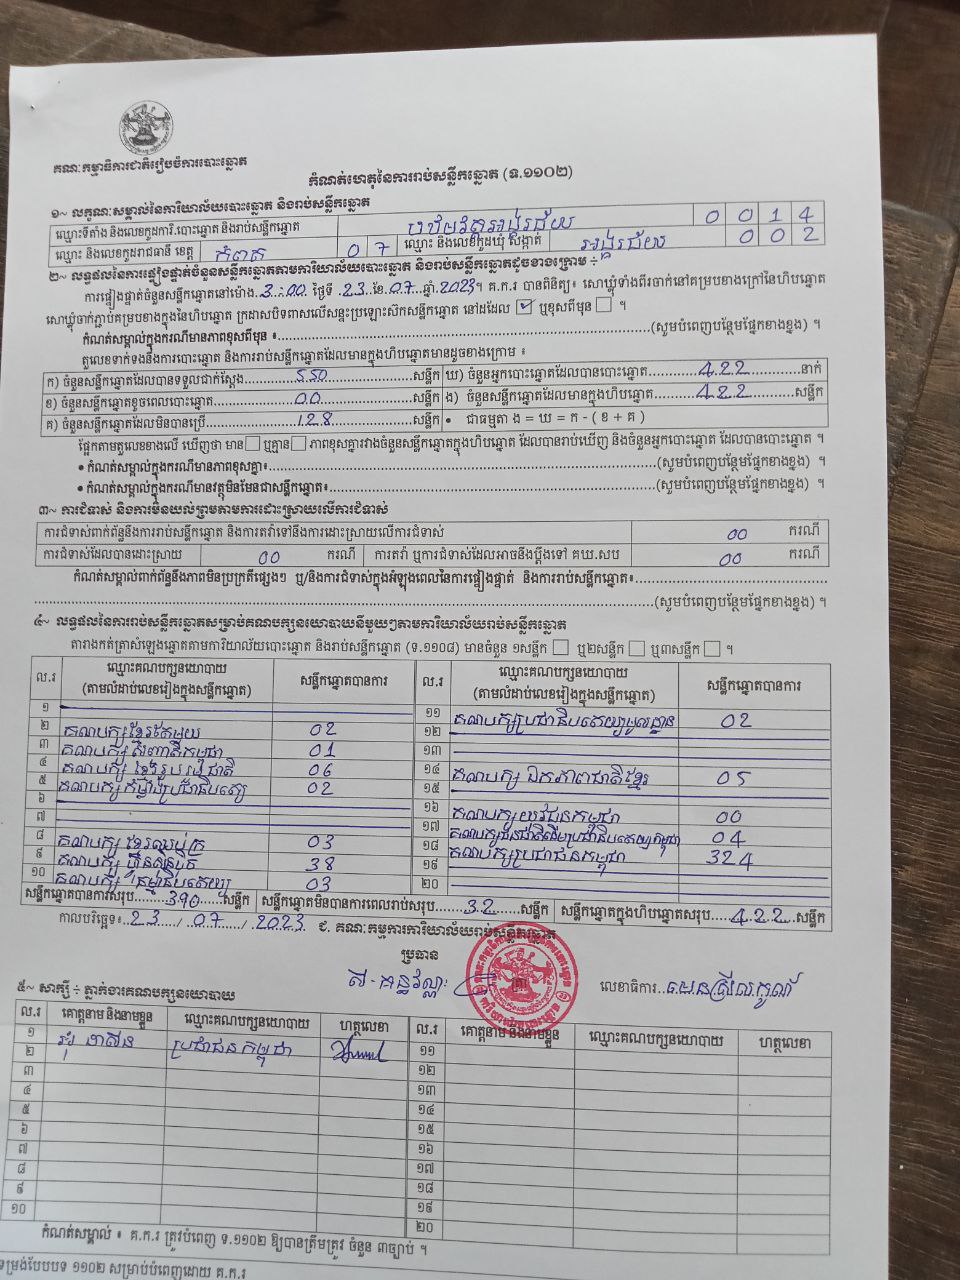 គណៈកម្មាធិការជាតិរៀបចំការបោះឆ្នោត
កំណត់ហេតុនៃការរាប់សន្លឹកឆ្នោត (ទ.១១០២)
១~ លក្ខណៈសម្គាល់នៃការិយាល័យបោះឆ្នោត និងរាប់សន្លឹកឆ្នោត
ឈ្មោះទីតាំង និងលេខកូដការិ.បោះឆ្នោត និងរាប់សន្លឹកឆ្នោត 0 0 1 4
ឈ្មោះ និងលេខកូដរាជធានី ខេត្ត កំពត 0 7 ឈ្មោះ និងលេខកូដឃុំ សង្កាត់ អង្គរជ័យ 0 0 2
២~ លទ្ធផលនៃការផ្ទៀងផ្ទាត់ចំនួនសន្លឹកឆ្នោតតាមការិយាល័យបោះឆ្នោត និងរាប់សន្លឹកឆ្នោតដូចខាងក្រោម ÷
ការផ្ទៀងផ្ទាត់ចំនួនសន្លឹកឆ្នោតនៅម៉ោង 3:00 ថ្ងៃទី 23 ខែ 07 ឆ្នាំ 2023។ គ.ក.រ បានពិនិត្យ៖ សោឃ្លុំទាំងពីរចាក់នៅគម្របខាងក្រៅនៃហិបឆ្នោត
សោឃ្លុំចាក់ភ្ជាប់គម្របខាងក្នុងនៃហិបឆ្នោត ក្រដាសបិទពាសលើសន្ទះប្រឡោះស៊កសន្លឹកឆ្នោត នៅដដែល ☑ ឬខុសពីមុន ☐ ។
កំណត់សម្គាល់ក្នុងករណីមានភាពខុសពីមុន ៖ (សូមបំពេញបន្ថែមផ្នែកខាងខ្នង) ។
តួលេខទាក់ទងនឹងការបោះឆ្នោត និងការរាប់សន្លឹកឆ្នោតដែលមានក្នុងហិបឆ្នោតមានដូចខាងក្រោម ៖
ក) ចំនួនសន្លឹកឆ្នោតដែលបានទទួលជាក់ស្តែង 550 សន្លឹក ឃ) ចំនួនអ្នកបោះឆ្នោតដែលបានបោះឆ្នោត 422 នាក់
ខ) ចំនួនសន្លឹកឆ្នោតខូចពេលបោះឆ្នោត 00 សន្លឹក ង) ចំនួនសន្លឹកឆ្នោតដែលមានក្នុងហិបឆ្នោត 422 សន្លឹក
គ) ចំនួនសន្លឹកឆ្នោតដែលមិនបានប្រើ 128 សន្លឹក • ជាធម្មតា ង = ឃ = ក - ( ខ + គ )
ផ្អែកតាមតួលេខខាងលើ ឃើញថា មាន ☐ ឬគ្មាន ☐ ភាពខុសគ្នារវាងចំនួនសន្លឹកឆ្នោតក្នុងហិបឆ្នោត ដែលបានរាប់ឃើញ និងចំនួនអ្នកបោះឆ្នោត ដែលបានបោះឆ្នោត ។
• កំណត់សម្គាល់ក្នុងករណីមានភាពខុសគ្នា៖ (សូមបំពេញបន្ថែមផ្នែកខាងខ្នង) ។
• កំណត់សម្គាល់ក្នុងករណីមានវត្ថុមិនមែនជាសន្លឹកឆ្នោត៖ (សូមបំពេញបន្ថែមផ្នែកខាងខ្នង) ។
៣~ ការជំទាស់ និងការមិនយល់ព្រមតាមការដោះស្រាយលើការជំទាស់
ការជំទាស់ពាក់ព័ន្ធនឹងការរាប់សន្លឹកឆ្នោត និងការតវ៉ាទៅនឹងការដោះស្រាយលើការជំទាស់ 00 ករណី
ការជំទាស់ដែលបានដោះស្រាយ 00 ករណី ការតវ៉ា ឬការជំទាស់ដែលអាចនឹងប្តឹងទៅ គឃ.សប 00 ករណី
កំណត់សម្គាល់ពាក់ព័ន្ធនឹងភាពមិនប្រក្រតីផ្សេងៗ ឬ/និងការជំទាស់ក្នុងអំឡុងពេលនៃការផ្ទៀងផ្ទាត់ និងការរាប់សន្លឹកឆ្នោត៖
(សូមបំពេញបន្ថែមផ្នែកខាងខ្នង) ។
៤~ លទ្ធផលនៃការរាប់សន្លឹកឆ្នោតសម្រាប់គណបក្សនយោបាយនីមួយៗតាមការិយាល័យរាប់សន្លឹកឆ្នោត
តារាងកត់ត្រាសំឡេងឆ្នោតតាមការិយាល័យបោះឆ្នោត និងរាប់សន្លឹកឆ្នោត (ទ.១១០៨) មានចំនួន ១សន្លឹក ☐ ឬ២សន្លឹក ☐ ឬ៣សន្លឹក ☐ ។
ល.រ ឈ្មោះគណបក្សនយោបាយ (តាមលំដាប់លេខរៀងក្នុងសន្លឹកឆ្នោត) សន្លឹកឆ្នោតបានការ ល.រ ឈ្មោះគណបក្សនយោបាយ (តាមលំដាប់លេខរៀងក្នុងសន្លឹកឆ្នោត) សន្លឹកឆ្នោតបានការ
១ ១១ គណបក្សប្រជាធិបតេយ្យមូលដ្ឋាន 02
២ គណបក្សខ្មែរតែមួយ 02 ១២
៣ គណបក្ស សញ្ជាតិកម្ពុជា 01 ១៣
៤ គណបក្ស ខ្មែររួបរួមជាតិ 06 ១៤ គណបក្ស ឯកភាពជាតិខ្មែរ 05
៥ គណបក្សកម្លាំងប្រជាធិបតេយ្យ 02 ១៥
៦ ១៦ គណបក្សយុវជនកម្ពុជា 00
៧ ១៧ គណបក្សជនជាតិដើមប្រជាធិបតេយ្យកម្ពុជា 04
៨ គណបក្ស ខ្មែរឈប់ក្រ 03 ១៨ គណបក្សប្រជាជនកម្ពុជា 324
៩ គណបក្ស ហ្វ៊ុនស៊ិនប៉ិច 38 ១៩
១០ គណបក្ស ធម្មាធិបតេយ្យ 03 ២០
សន្លឹកឆ្នោតបានការសរុប 390 សន្លឹក សន្លឹកឆ្នោតមិនបានការពេលរាប់សរុប 32 សន្លឹក សន្លឹកឆ្នោតក្នុងហិបឆ្នោតសរុប 422 សន្លឹក
កាលបរិច្ឆេទ៖ 23 / 07 / 2023 ជ. គណៈកម្មការការិយាល័យរាប់សន្លឹកឆ្នោត
ប្រធាន
លេខាធិការ
៥~ សាក្សី ÷ ភ្នាក់ងារគណបក្សនយោបាយ
ល.រ គោត្តនាម និងនាមខ្លួន ឈ្មោះគណបក្សនយោបាយ ហត្ថលេខា ល.រ គោត្តនាម និងនាមខ្លួន ឈ្មោះគណបក្សនយោបាយ ហត្ថលេខា
១ ប្រជាជនកម្ពុជា ១១
២ ១២
៣ ១៣
៤ ១៤
៥ ១៥
៦ ១៦
៧ ១៧
៨ ១៨
៩ ១៩
១០ ២០
កំណត់សម្គាល់ ៖ គ.ក.រ ត្រូវបំពេញ ទ.១១០២ ឱ្យបានត្រឹមត្រូវ ចំនួន ៣ច្បាប់ ។
ទម្រង់បែបបទ ១១០២ សម្រាប់បំពេញដោយ គ.ក.រ